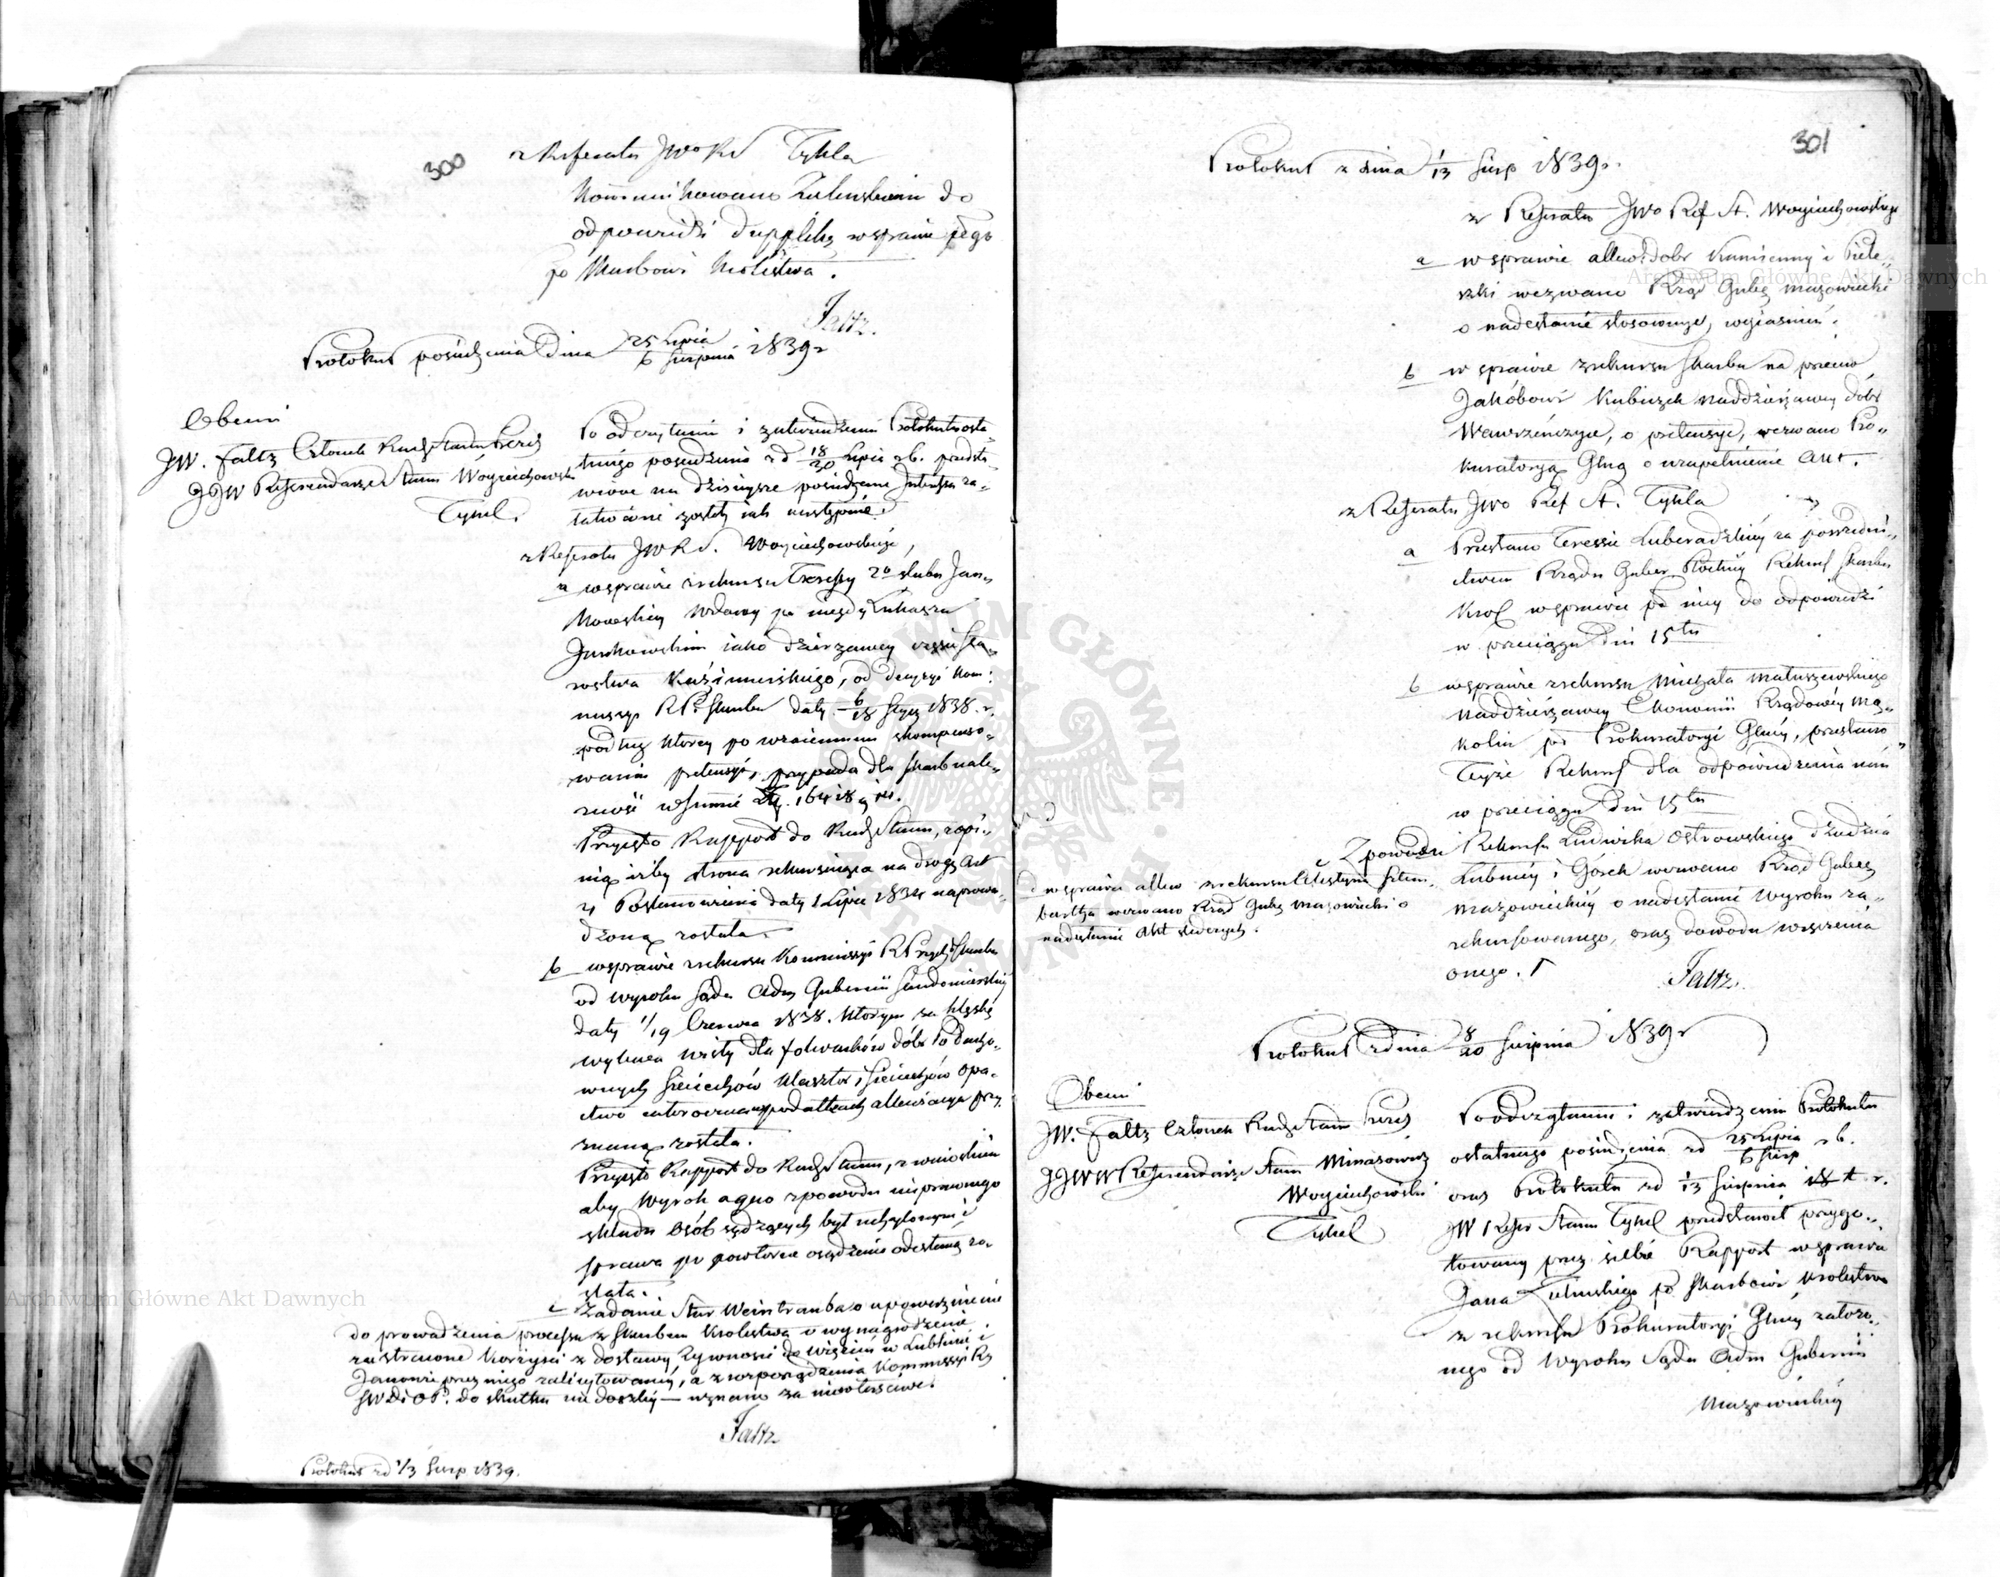 300
z Referatu JWo RS Tykla
Kommunikowano Zielenskiemu do
odpowiedzi Dupplikę w sprawie jego
po Skarbowi Królestwa.
Faltz.
Protokuł posiedzenia Dnia 25 Lipca / 6 Sierpnia 1839 r
Obecni
JW. Faltz Członek Rady Stanu Prezis
JJW Referendarze Stanu Woyciechowski
Tykel.
Po odczytaniu i zatwierdzeniu Protokułu osta-
tniego posiedzenia z d 18/30 Lipca r b. przedsta-
wione na dzisieysze posiedzenie Interessa za-
łatwione zostały iak następnie.
z Referatu JW RS. Woyciechowskiego,
a w sprawie z rekursu Teressy 2o ślubu Jan-
kowskiey Wdowy po niegdy Łukaszu
Junkowskim iako dzierzawcy części Sta-
rostwa Kazimirskiego, od decyzyi Kom-
missyi R P. Skarbu daty 6/18 Stycz 1838 r.
podług ktorey po wzaiemnem skompenso-
waniu pretensyi, przypada dla Skarbu nale-
żność w summie Złp. 16418 g
Przyięto Rapport do Rady Stanu, z opi-
nią iżby strona rekursuiąca na drogę Art
4 Postanowienia daty 1 Lipca 1834 naprowa-
dzoną została.
b w sprawie z rekursu Kommissyi R Przych i Skarbu
od wyroku Sądu Adm Gubernii Sandomierskiey
daty 7/19 Czerwca 1838. którym za klęskę
wylewu Wisły dla folwarków dóbr Po Ducho-
wnych Sieciechów Klasztor i Sieciechów Opa-
ctwo w podatkach allewiacya przy-
znaną została.
Przyięto Rapport do Rady Stanu, z wnioskiem
aby Wyrok a quo z powodu nieprawnego
składu Osób sądzących był uchylonym i
sprawa po powtórne osądzenie odesłaną zo-
stała.
c Żądanie Star Weintrauba o upoważnienie
do prowadzenia processu z Skarbem Krolestwa o wynagrodzenie
za stracone korzyści z dostawy Żywności do więzień w Lublinie i
Janowie przez niego zalicytowaney, a z rozporządzenia Kommissyi R
SW D i OP. do skutku nie doszłey — uznano za niewłaściwe.
Faltz
Protokuł z d 1/13 Sierp 1839.
301
Protokuł z dnia 1/13 Sierp 1839 r.
z Referatu JWo Ref St. Woyciechowskiego
a w sprawie allew: dobr Kamienny i Piele-
szki wezwano Rząd Guber Mazowiecki
o nadesłanie stosownych wyiaśnień.
b w sprawie z rekursu Skarbu na przeciw
Jakóbowi Kubiczek naddzierżawcy dobr
Wawrzeńczyce, o pretensye, wezwano Pro-
kuratoryą Głną o uzupełnienie Akt.
z Referatu JWo Ref St. Tykla
a Przesłano Teressie Luberadzkiey za pośredni-
ctwem Rządu Guber Płockiey Rekurs Skarbu
Krol w sprawie po niey do odpowiedzi
w przeciągu Dni 15tu
b w sprawie z rekursu Michała Matuszewskiego
naddzierżawcy Ekonomii Rządowey Mą-
kolin po Prokuratoryi Głney, przesłano
Teyże Rekurs dla odpowiedzenia nań
w przeciągu Dni 15tu
c Z powodu Rekursu Ludwika Ostrowskiego dziedzica
Lubiney i Górek wezwano Rząd Guber
Mazowieckiey o nadesłanie Wyroku za-
rekursowanego, oraz dowodu wręczenia
onego. Γ
d w sprawie allew z rekursu Celestyna Sztem-
bartha wezwano Rząd Guber Mazowiecki o
nadesłanie Akt śledczych.
Faltz.
Protokuł z dnia 8/20 Sierpnia 1839 r
Obecni
JW. Faltz Członek Rady Stanu Prezes
JJWW Referendarze Stanu Minasowicz
Woyciechowski
Tykel
Po odczytaniu i zatwierdzeniu Protokułu
ostatniego posiedzenia z d 25 Lipca / 6 Sierp r b.
oraz Protokułu z d 1/13 Sierpnia t. r.
JW Refer Stanu Tykel przedstawił przygo-
towany przez siebie Rapport w sprawie
Jana Zielenskiego po Skarbowi Krolestwa
z rekursu Prokuratoryi Głney założo-
nego od Wyroku Sądu Adm Gubernii
Mazowieckiey
Archiwum Główne Akt Dawnych
Archiwum Główne Akt Dawnych